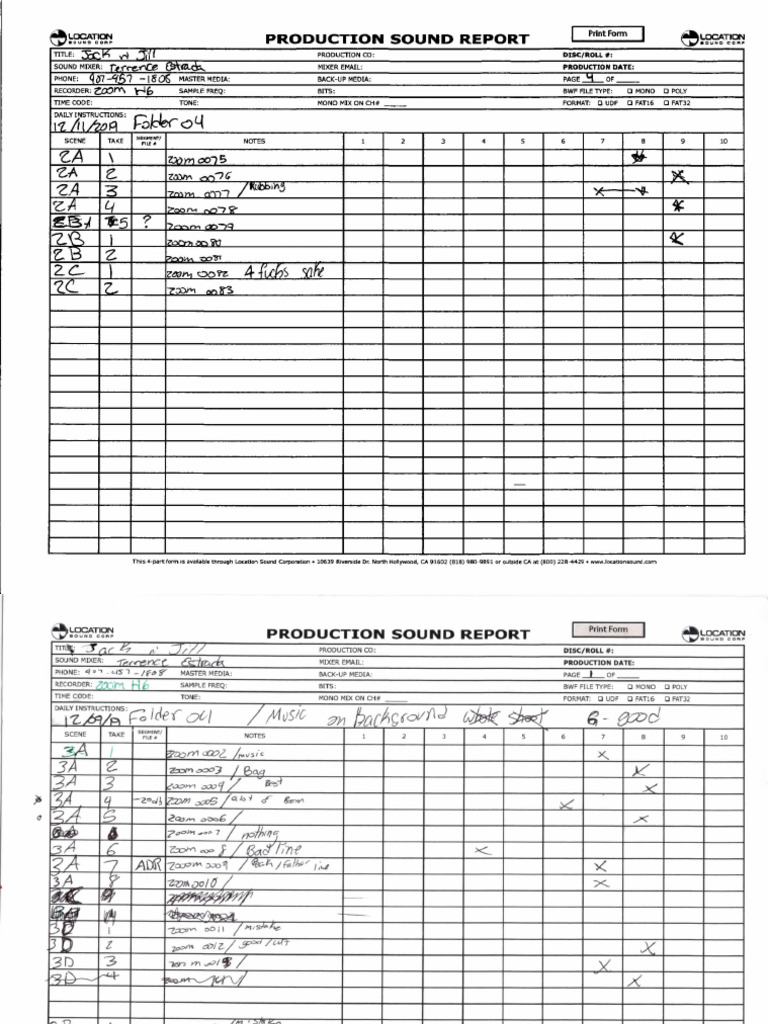 LOCATION SOUND CORP PRODUCTION SOUND REPORT Print Form LOCATION SOUND CORP
TITLE: Jack n Jill PRODUCTION CO: DISC/ROLL #:
SOUND MIXER: Terrence Estrada MIXER EMAIL: PRODUCTION DATE:
PHONE: 407-457-1808 MASTER MEDIA: BACK-UP MEDIA: PAGE 4 OF
RECORDER: Zoom H6 SAMPLE FREQ: BITS: BWF FILE TYPE: MONO POLY
TIME CODE: TONE: MONO MIX ON CH# FORMAT: UDF FAT16 FAT32
DAILY INSTRUCTIONS:
12/11/2019 Folder 04
SCENE TAKE SEGMENT/ FILE # NOTES 1 2 3 4 5 6 7 8 9 10
2A 1 zoom 0075
2A 2 zoom 0076 x
2A 3 zoom 0077 / Rubbing x x
2A 4 zoom 0078 x
5 ? zoom 0079
2B 1 zoom 0080 x
2B 2 zoom 0081
2C 1 zoom 0082 4 fucks sake
2C 2 zoom 0083
This 4-part form is available through Location Sound Corporation • 10639 Riverside Dr. North Hollywood, CA 91602 (818) 980-9891 or outside CA at (800) 228-4429 • www.locationsound.com
LOCATION SOUND CORP PRODUCTION SOUND REPORT Print Form LOCATION SOUND CORP
TITLE: Jack n Jill PRODUCTION CO: DISC/ROLL #:
SOUND MIXER: Terrence Estrada MIXER EMAIL: PRODUCTION DATE:
PHONE: 407-457-1808 MASTER MEDIA: BACK-UP MEDIA: PAGE 1 OF
RECORDER: Zoom H6 SAMPLE FREQ: BITS: BWF FILE TYPE: MONO POLY
TIME CODE: TONE: MONO MIX ON CH# FORMAT: UDF FAT16 FAT32
DAILY INSTRUCTIONS:
12/09/19 Folder 04 / Music on Background whole shoot G - good
SCENE TAKE SEGMENT/ FILE # NOTES 1 2 3 4 5 6 7 8 9 10
3A 1 zoom 0002 / music x
3A 2 zoom 0003 / Bag x
3A 3 zoom 0004 / Best x
3A 4 -20db zoom 0005 / a lot of Boom x
3A 5 zoom 0006 / x
zoom 0007 / nothing
3A 6 zoom 0008 / Bad line x
3A 7 ADR zoom 0009 / Peak / Father line x
3A 8 zoom 0010 / x
3D 1 zoom 0011 / mistake
3D 2 zoom 0012 / good / cut x
3D 3 x
3D 4 zoom x